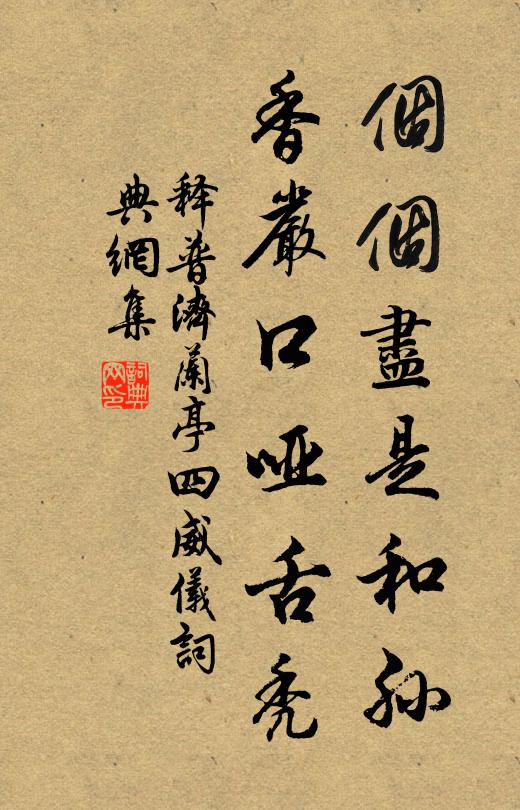 個個盡是和孙
香嚴口啞舌禿
释普濟蘭亭四威儀詞
典網集
詞典
网印